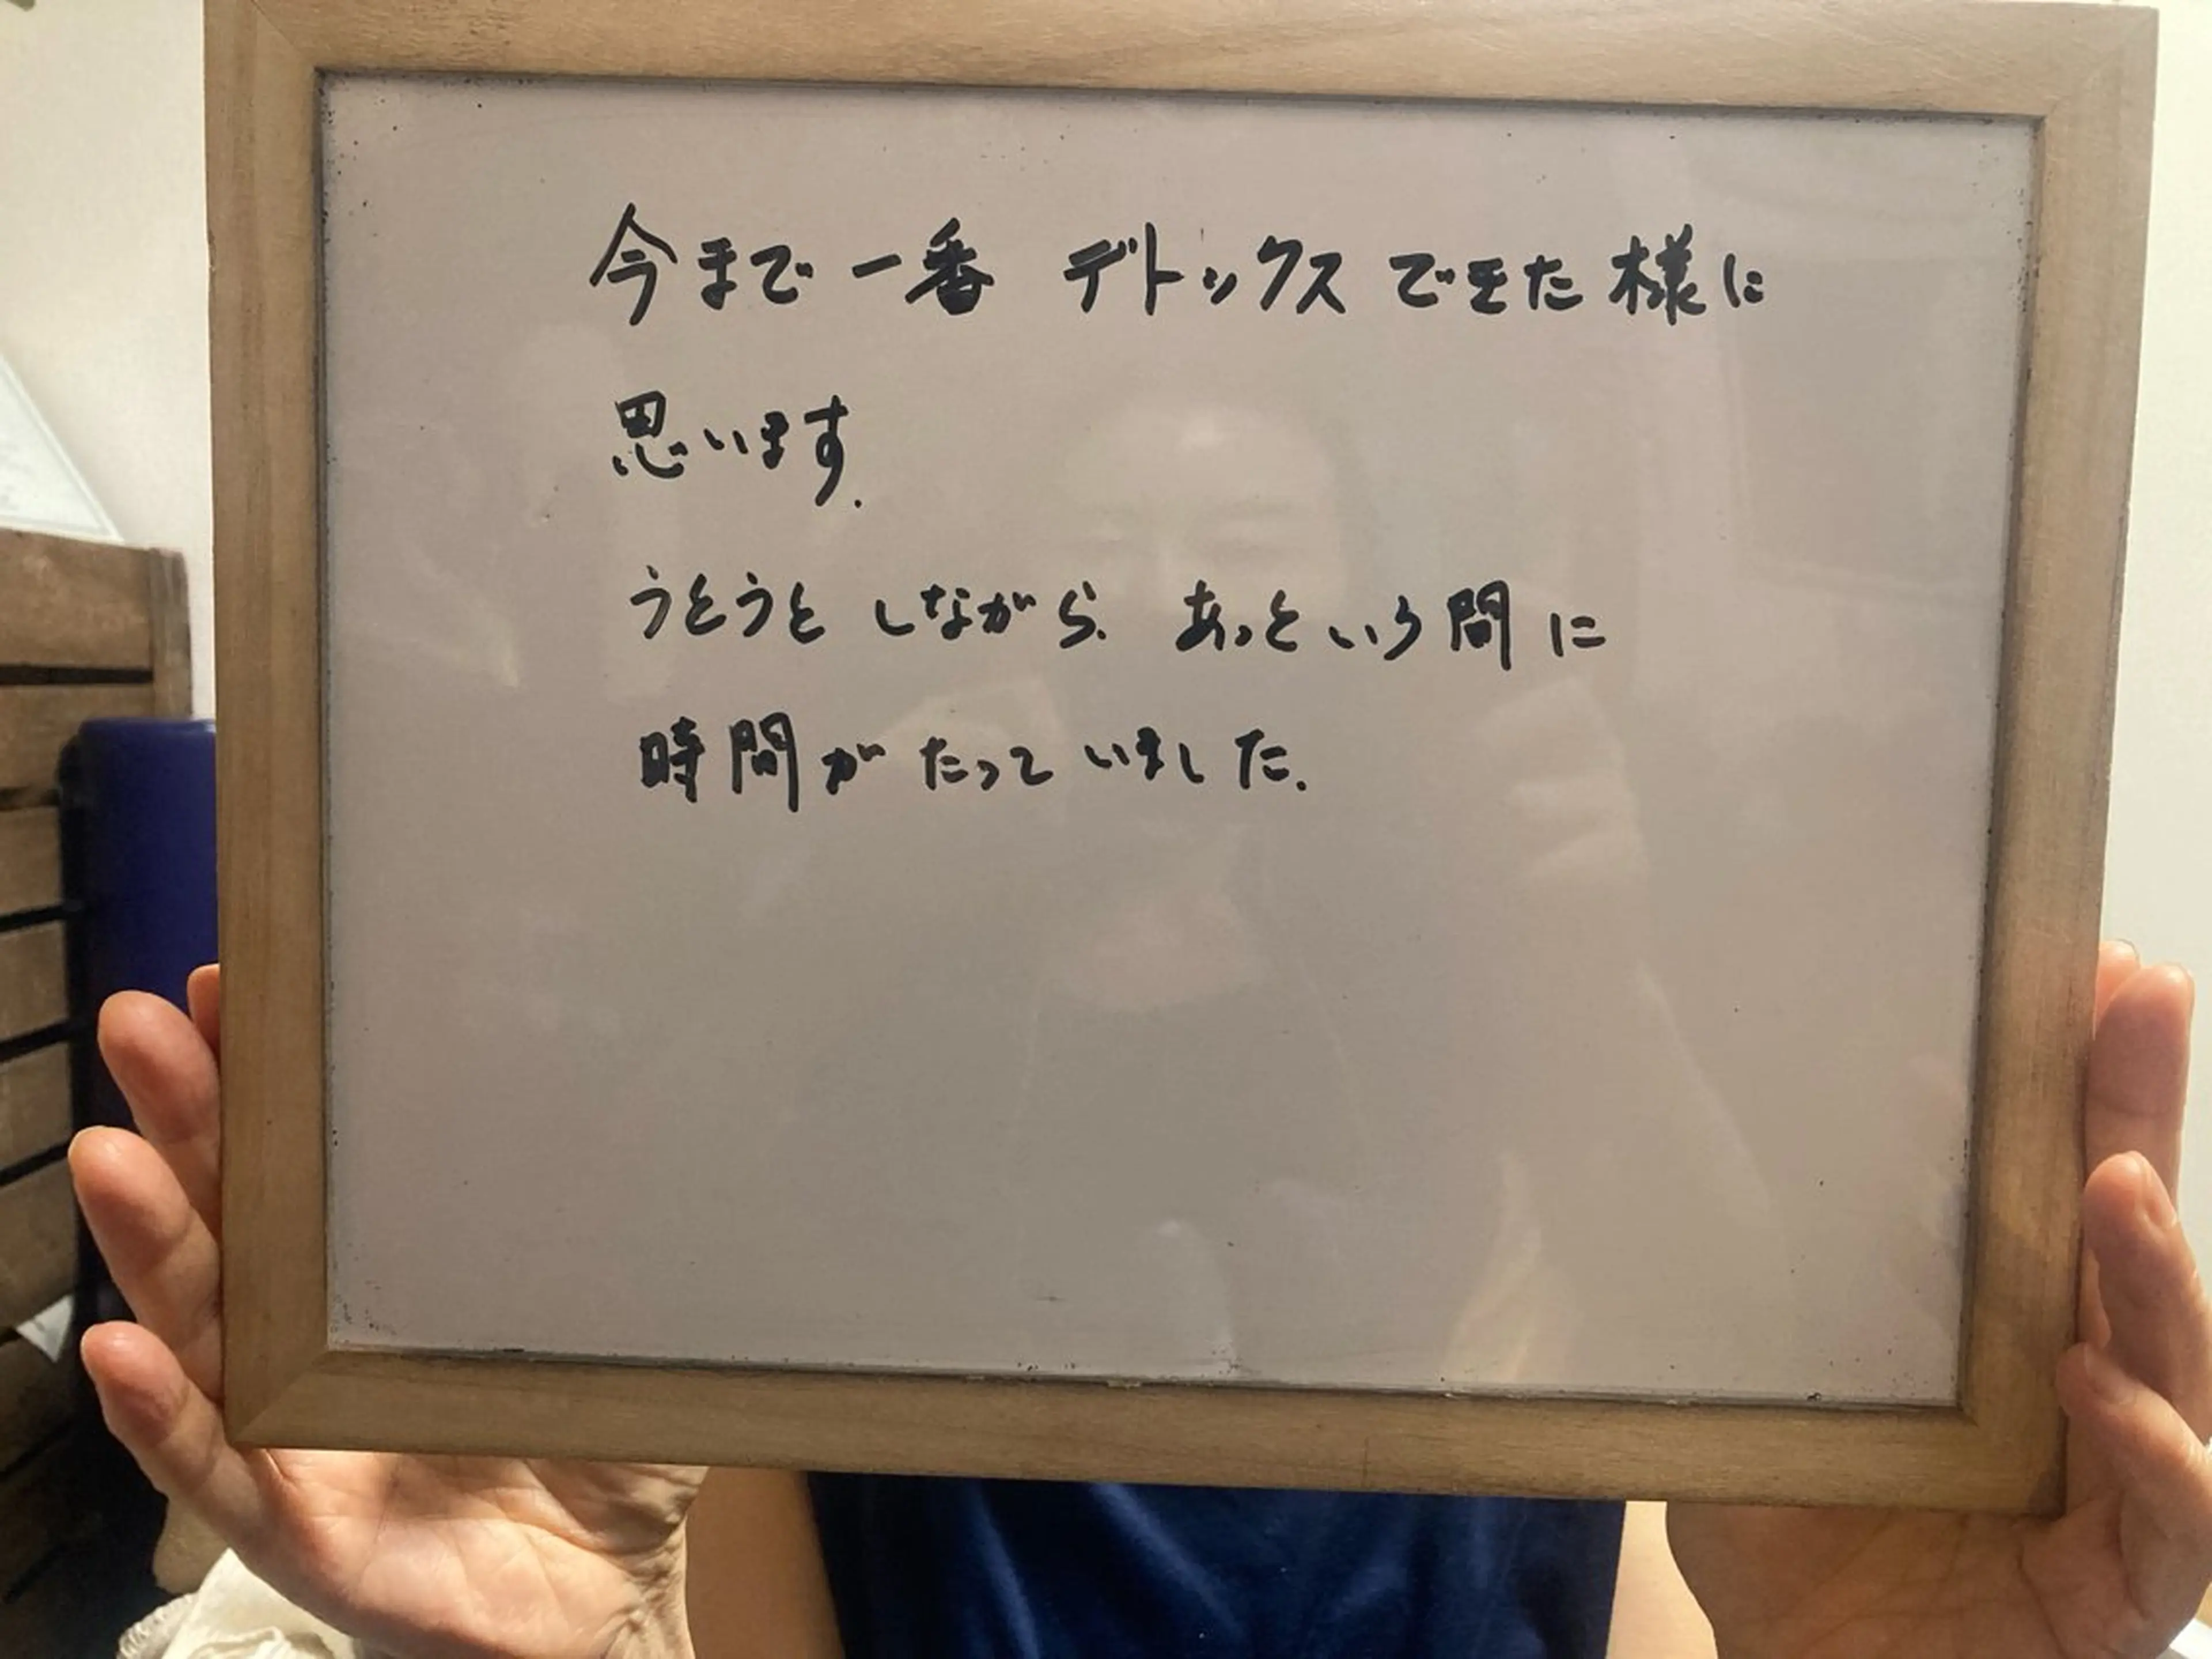 今まで一番 デトックス できた様に
思います.
うとうと しながら、あっという間に
時間が たって いました.